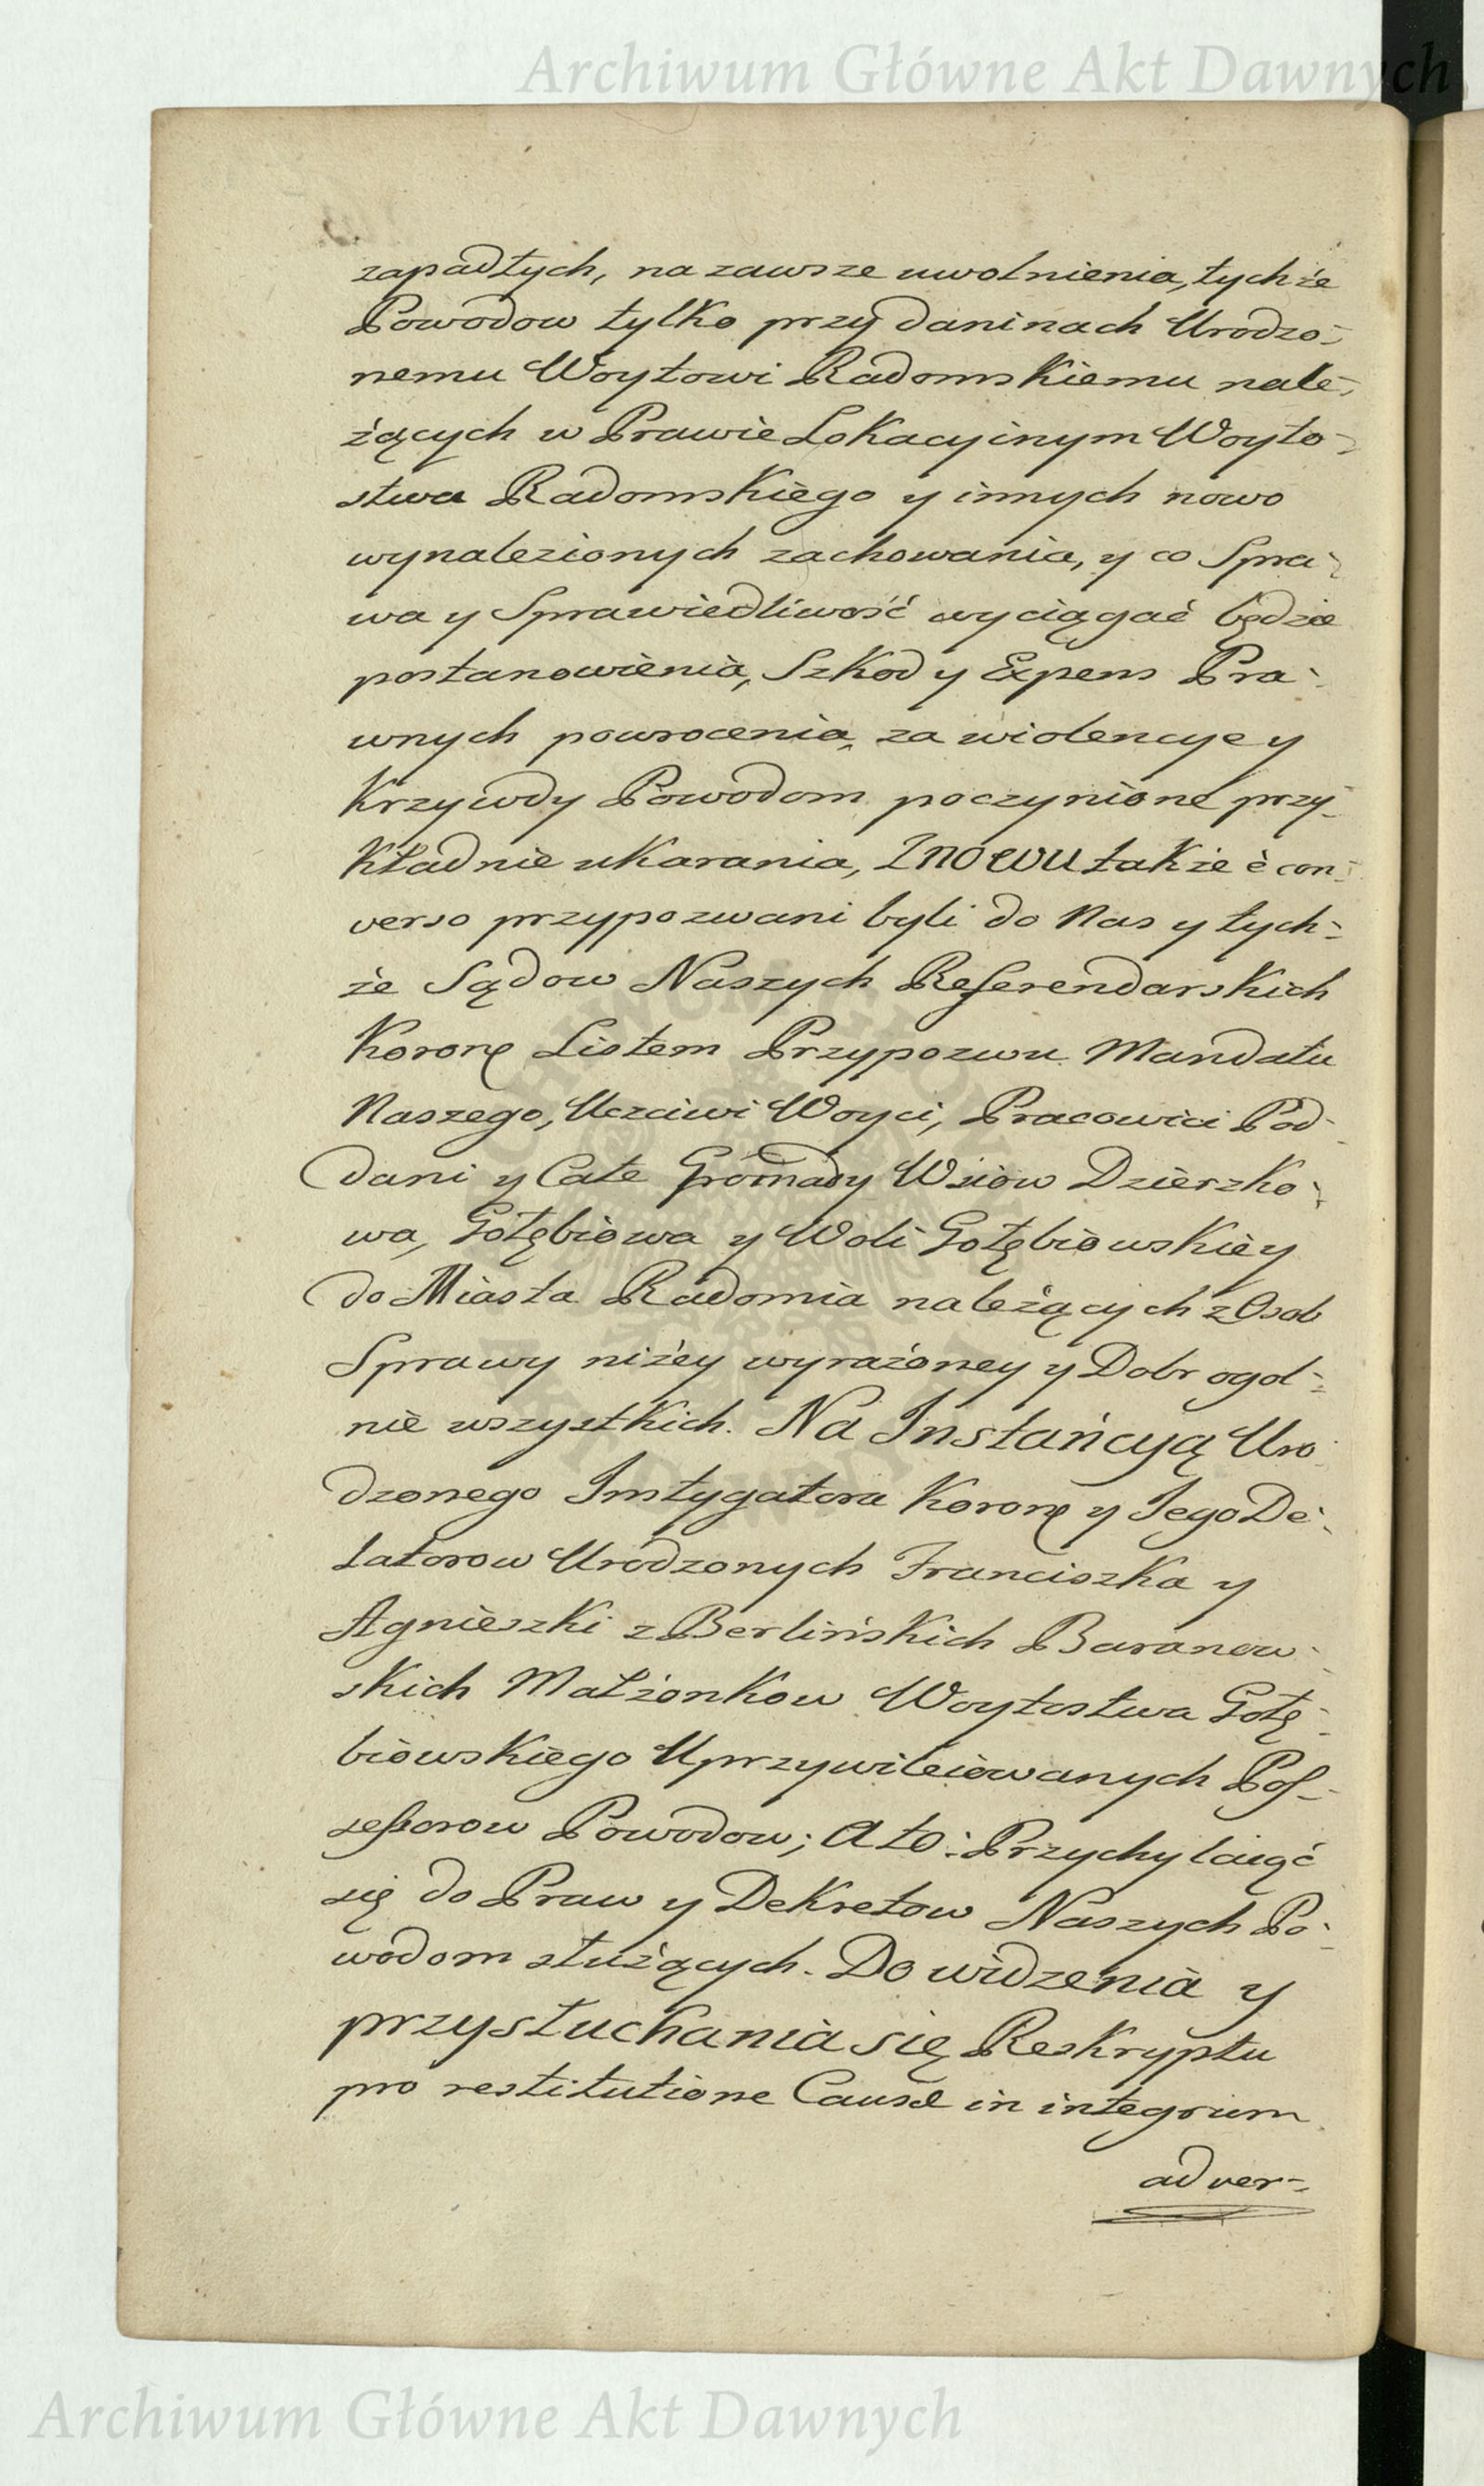 Archiwum Główne Akt Dawnych
zapadłych, na zawsze uwolnienia, tychże
Powodow tylko przy daninach Urodzo-
nemu Woytowi Radomskiemu nale-
żących w Prawie Lokacyinym Woyto-
stwa Radomskiego y innych nowo
wynalezionych zachowania, y co Spra-
wa y Sprawiedliwość wyciągać będzie
postanowienia, Szkod y Expens Pra-
wnych powrocenia, za wiolencye y
Krzywdy Powodom poczynione przy-
kładnie ukarania, Znowu także è con-
verso przypozwani byli do Nas y tych-
że Sądow Naszych Referendarskich
Koronę Listem Przypozwu Mandatu
Naszego, Uczciwi Woyci, Pracowici Pod-
dani y Całe Gromady Wsiow Dzierzko-
wa, Gołębiowa y Woli Gołębiowskiey
do Miasta Radomia należących z Osob
Sprawy niżey wyrażoney y Dobr ogol-
nie wszystkich. Na Instańcyą Uro-
dzonego Instygatora Koronę y Jego De-
latorow Urodzonych Franciszka y
Agnieszki z Berlińskich Baranow-
skich Małżonkow Woytostwa Gołę-
biowskiego Uprzywileiowanych Pos-
sessorow Powodow; Ato: Przychylaiąć
się do Praw y Dekretow Naszych Po-
wodom służących. Do widzenia y
przysłuchania się Reskryptu
pro restitutione Causæ in integrum
adver-
Archiwum Główne Akt Dawnych